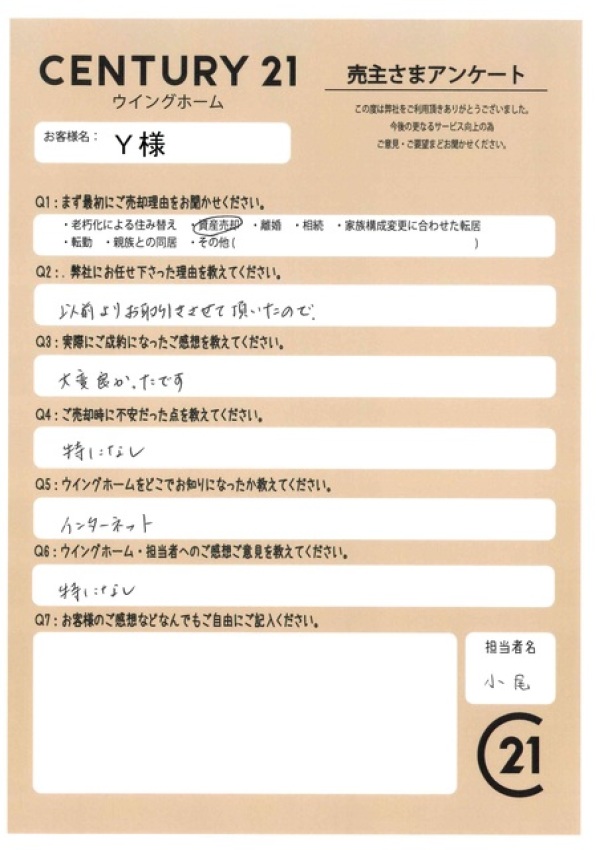 CENTURY 21
ウイングホーム
売主さまアンケート
この度は弊社をご利用頂きありがとうございました。
今後の更なるサービス向上の為
ご意見・ご要望までお聞かせください。
お客様名： Y様
Q1：まず最初にご売却理由をお聞かせください。
・老朽化による住み替え ・資産売却 ・離婚 ・相続 ・家族構成変更に合わせた転居
・転勤 ・親族との同居 ・その他（ ）
Q2：. 弊社にお任せ下さった理由を教えてください。
以前よりお取引させて頂いたので.
Q3：実際にご成約になったご感想を教えてください。
大変良かったです
Q4：ご売却時に不安だった点を教えてください。
特になし
Q5：ウイングホームをどこでお知りになったか教えてください。
インターネット
Q6：ウイングホーム・担当者へのご感想ご意見を教えてください。
特になし
Q7：お客様のご感想などなんでもご自由にご記入ください。
担当者名
小尾
21